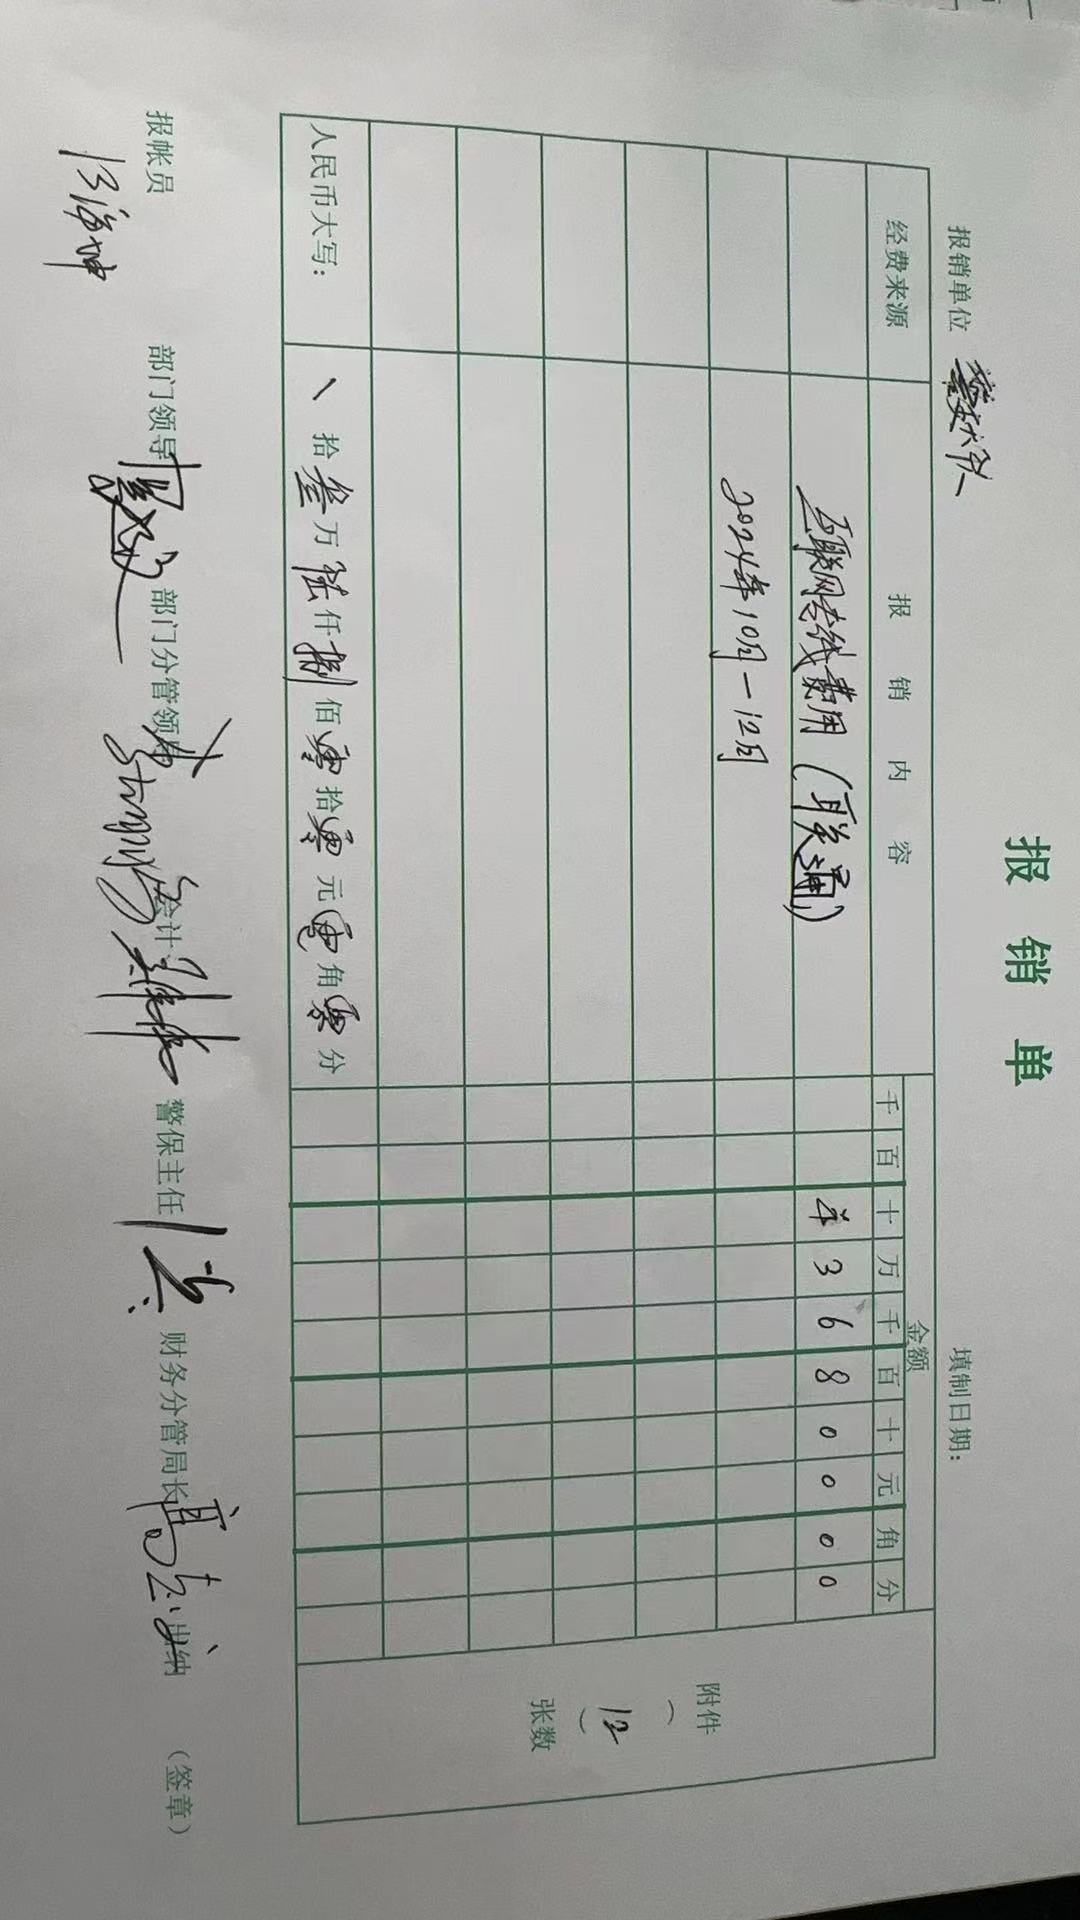 报销单
报销单位
填制日期:
经费来源 报销内容 金额
千 百 十 万 千 百 十 元 角 分
互联网专线费用(联通) ¥ 3 6 8 0 0 0 0
2024年10月—12月
附件
(12)
张数
人民币大写: \拾叁万陆仟捌佰零拾零元零角零分
报帐员 部门领导 部门分管领导 会计 警保主任 财务分管局长 出纳 (签章)